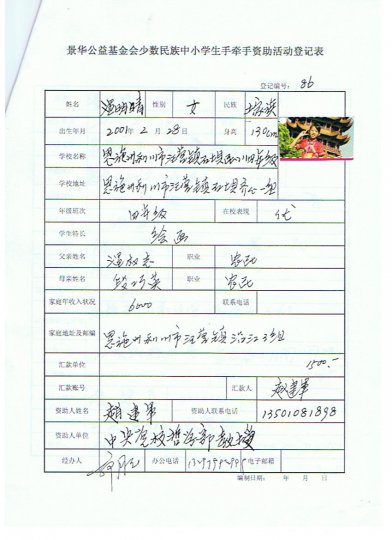 景华公益基金会少数民族中小学生手牵手资助活动登记表
登记编号： 86
姓名 温明晴 性别 女 民族 土家族
出生年月 2001年 2月 28日 身高 130cm
学校名称 恩施州利川市汪营镇 小学
学校地址 恩施州利川市汪营镇 一组
年级班次 四年级 在校表现 优
学生特长 绘画
父亲姓名 温 志 职业 农民
母亲姓名 段 英 职业 农民
家庭年收入状况 6000 联系电话
家庭地址及邮编 恩施州利川市汪营镇沿江3组
汇款单位 1500.-
汇款账号 汇款人 赵建军
资助人姓名 赵建军 资助人联系电话 13501081898
资助人单位 中央党校哲学部教授
经办人 办公电话 电子邮箱
编制日期： 年 月 日